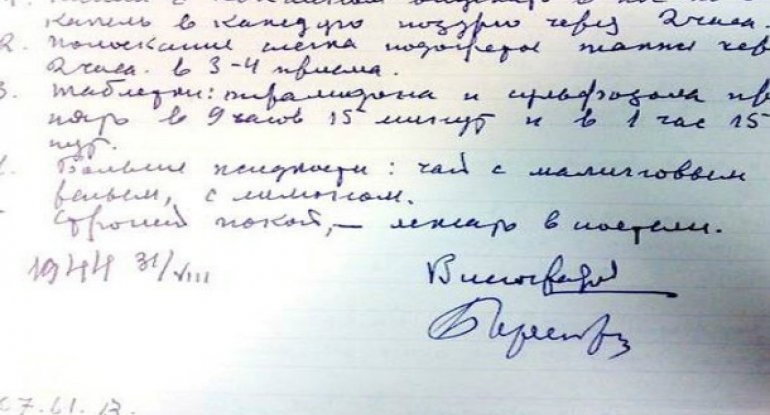 капель в каждую ноздрю через 2 часа.
2. Полоскание слегка подогретое
2 часа. в 3-4 приема.
3. Таблетки: пирамидона и сульфазола
в 9 часов 15 минут и в 1 час 15
Больше жидкости: чай с малиновым
вареньем, с лимоном.
Строгий покой, – лежать в постели.
1944 31/VIII
Виноградов